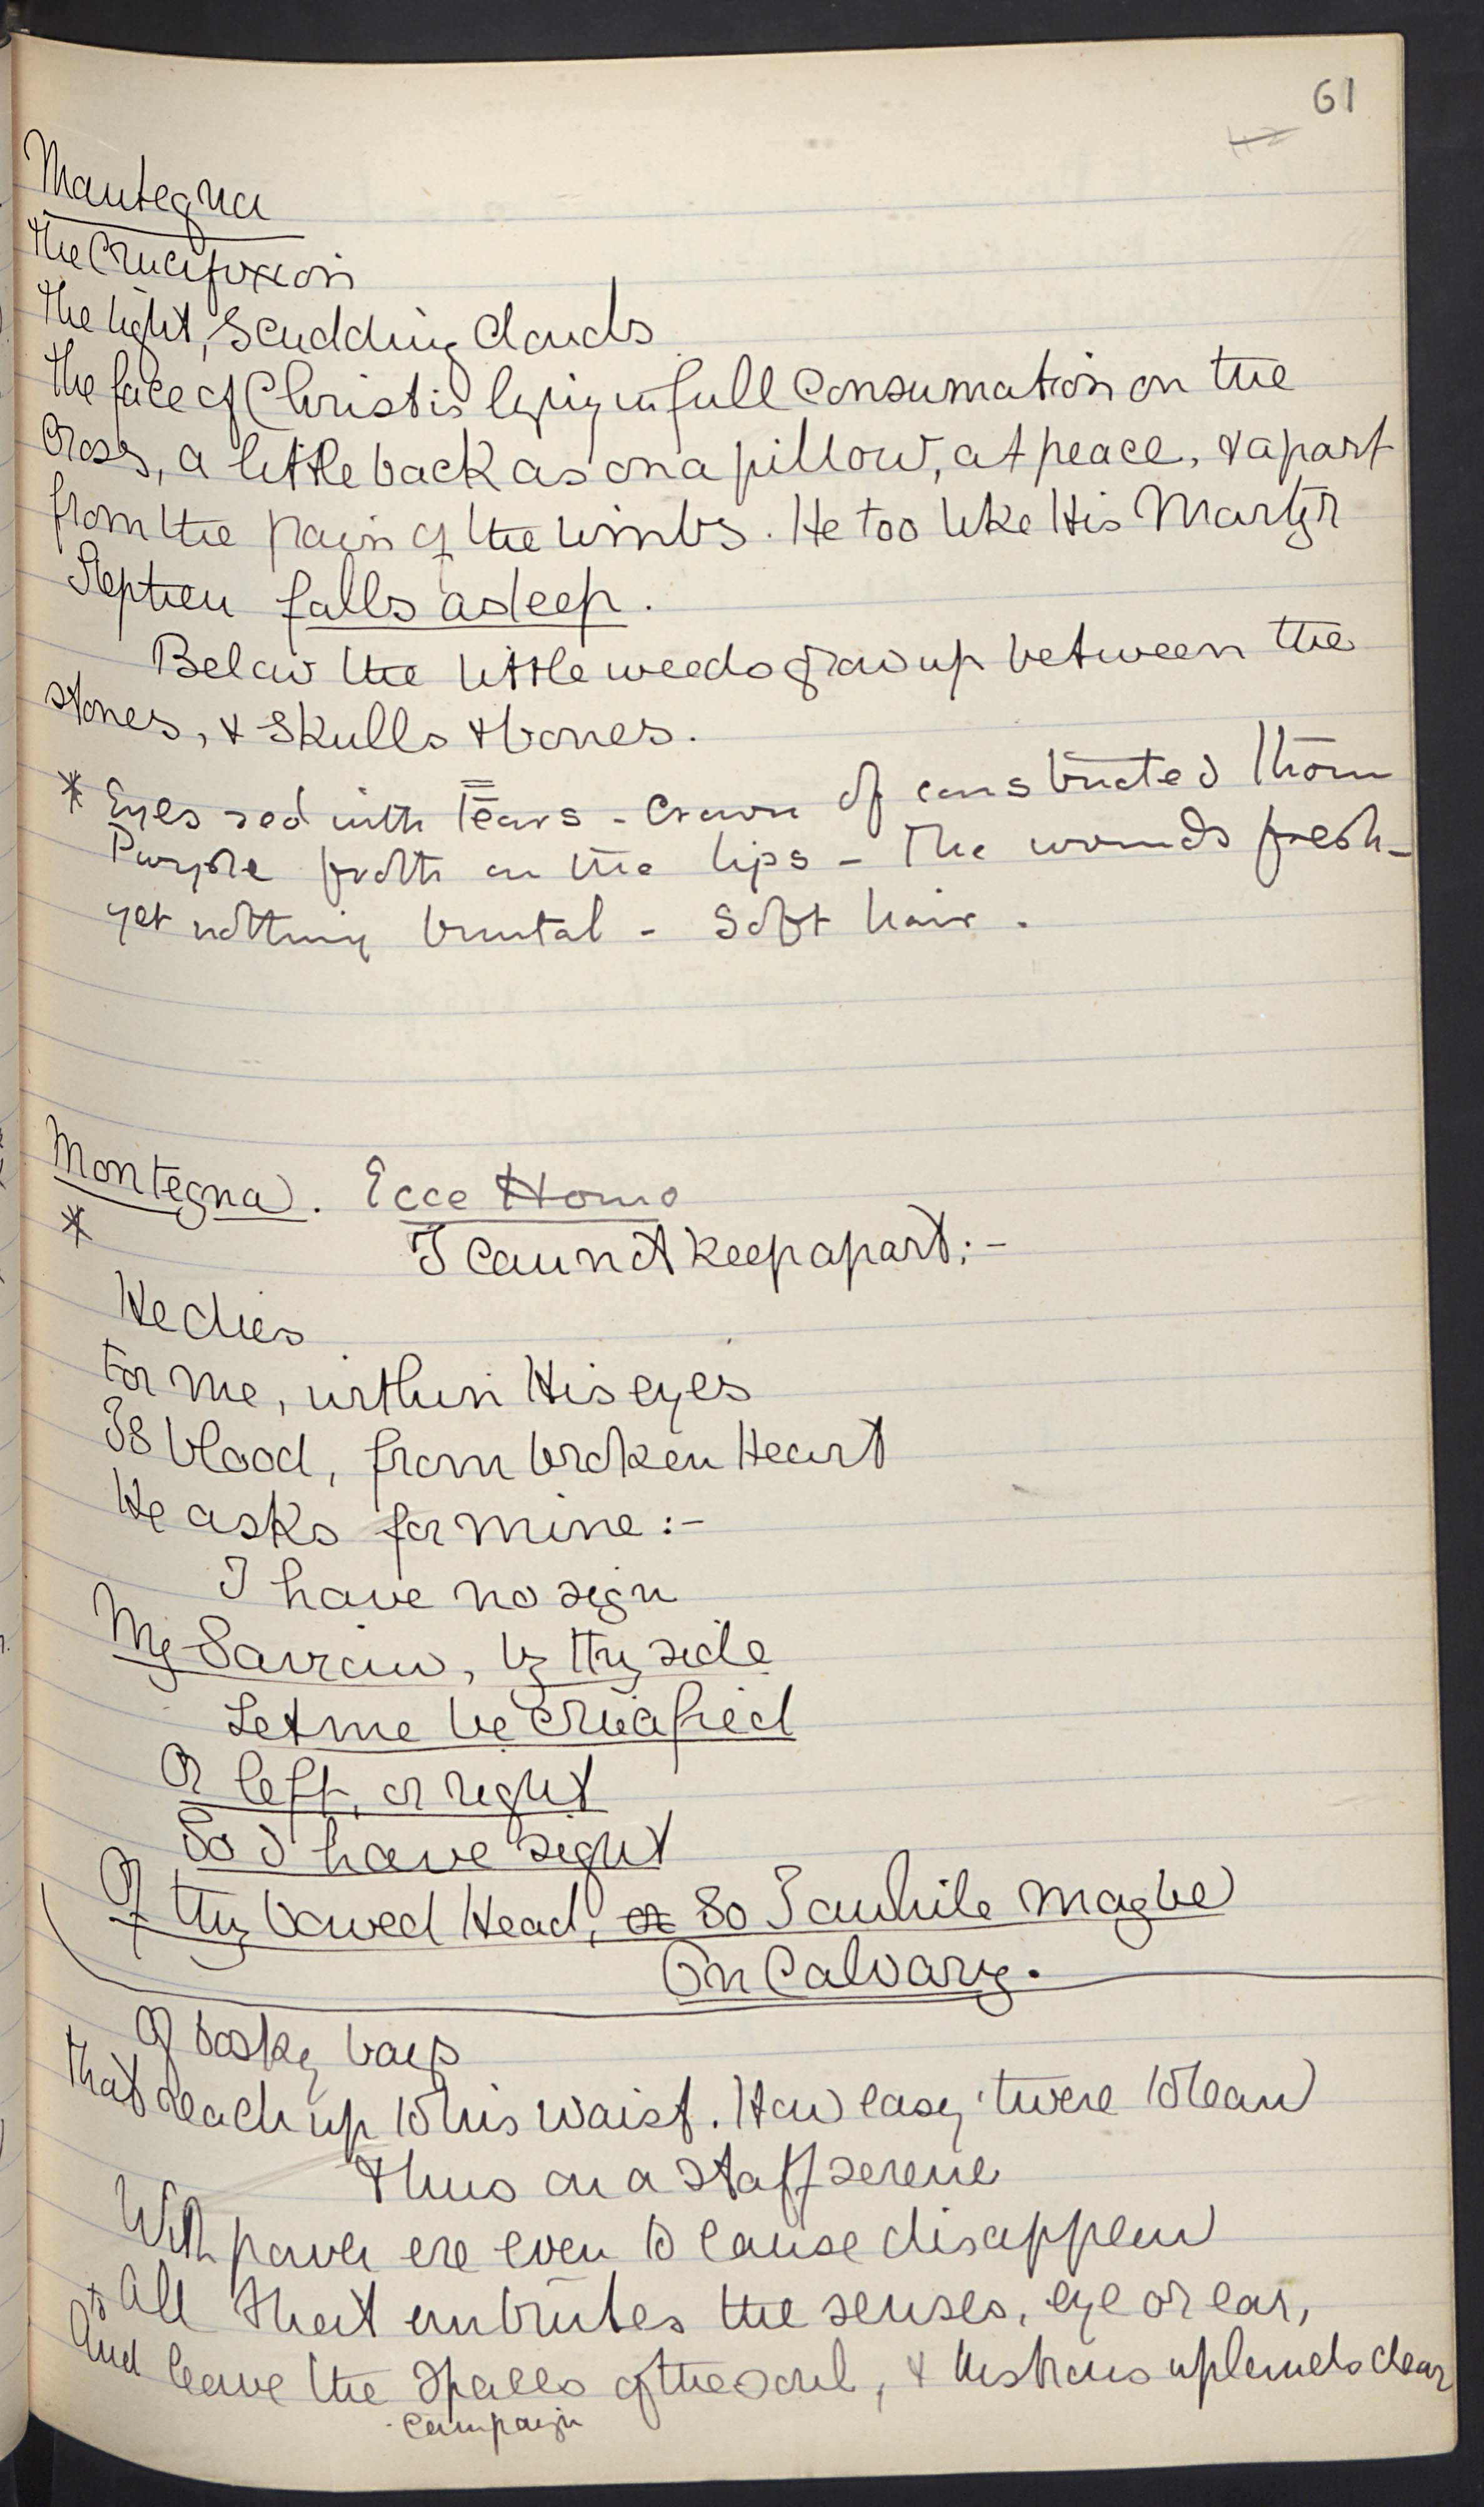 61
Mantegna
The Crucifixion
The light, scudding clouds
The face of Christ is lying in full consumation on the
Cross, a little back as on a pillow, at peace, & apart
from the pain of the limbs. He too like His Martyr
Stephen falls asleep.
Below the little weeds grow up between the
stones, & skulls & bones.
* Eyes red with tears - Crown of constructed thorn
Purple froth on the lips - The wounds fresh -
yet nothing brutal - Soft hair.
Montegna. Ecce Homo
*
I cannot keep apart:-
He dies
For me, within His eyes
Is blood, from broken Heart
He asks for mine:-
I have no sign
My Saviour, by thy side
Let me be crucified
Or left, or right
So I have sight
Of thy bowed Head, or So I awhile may be
On Calvary.
Of bosky
That reach up to his waist. How easy 'twere to lean
Thus on a staff serene
With power ere even to cause disappear
to All that embrutes the senses, eye or ear,
And leave the spaces of the soul, & lustrous uplands clear
campaign